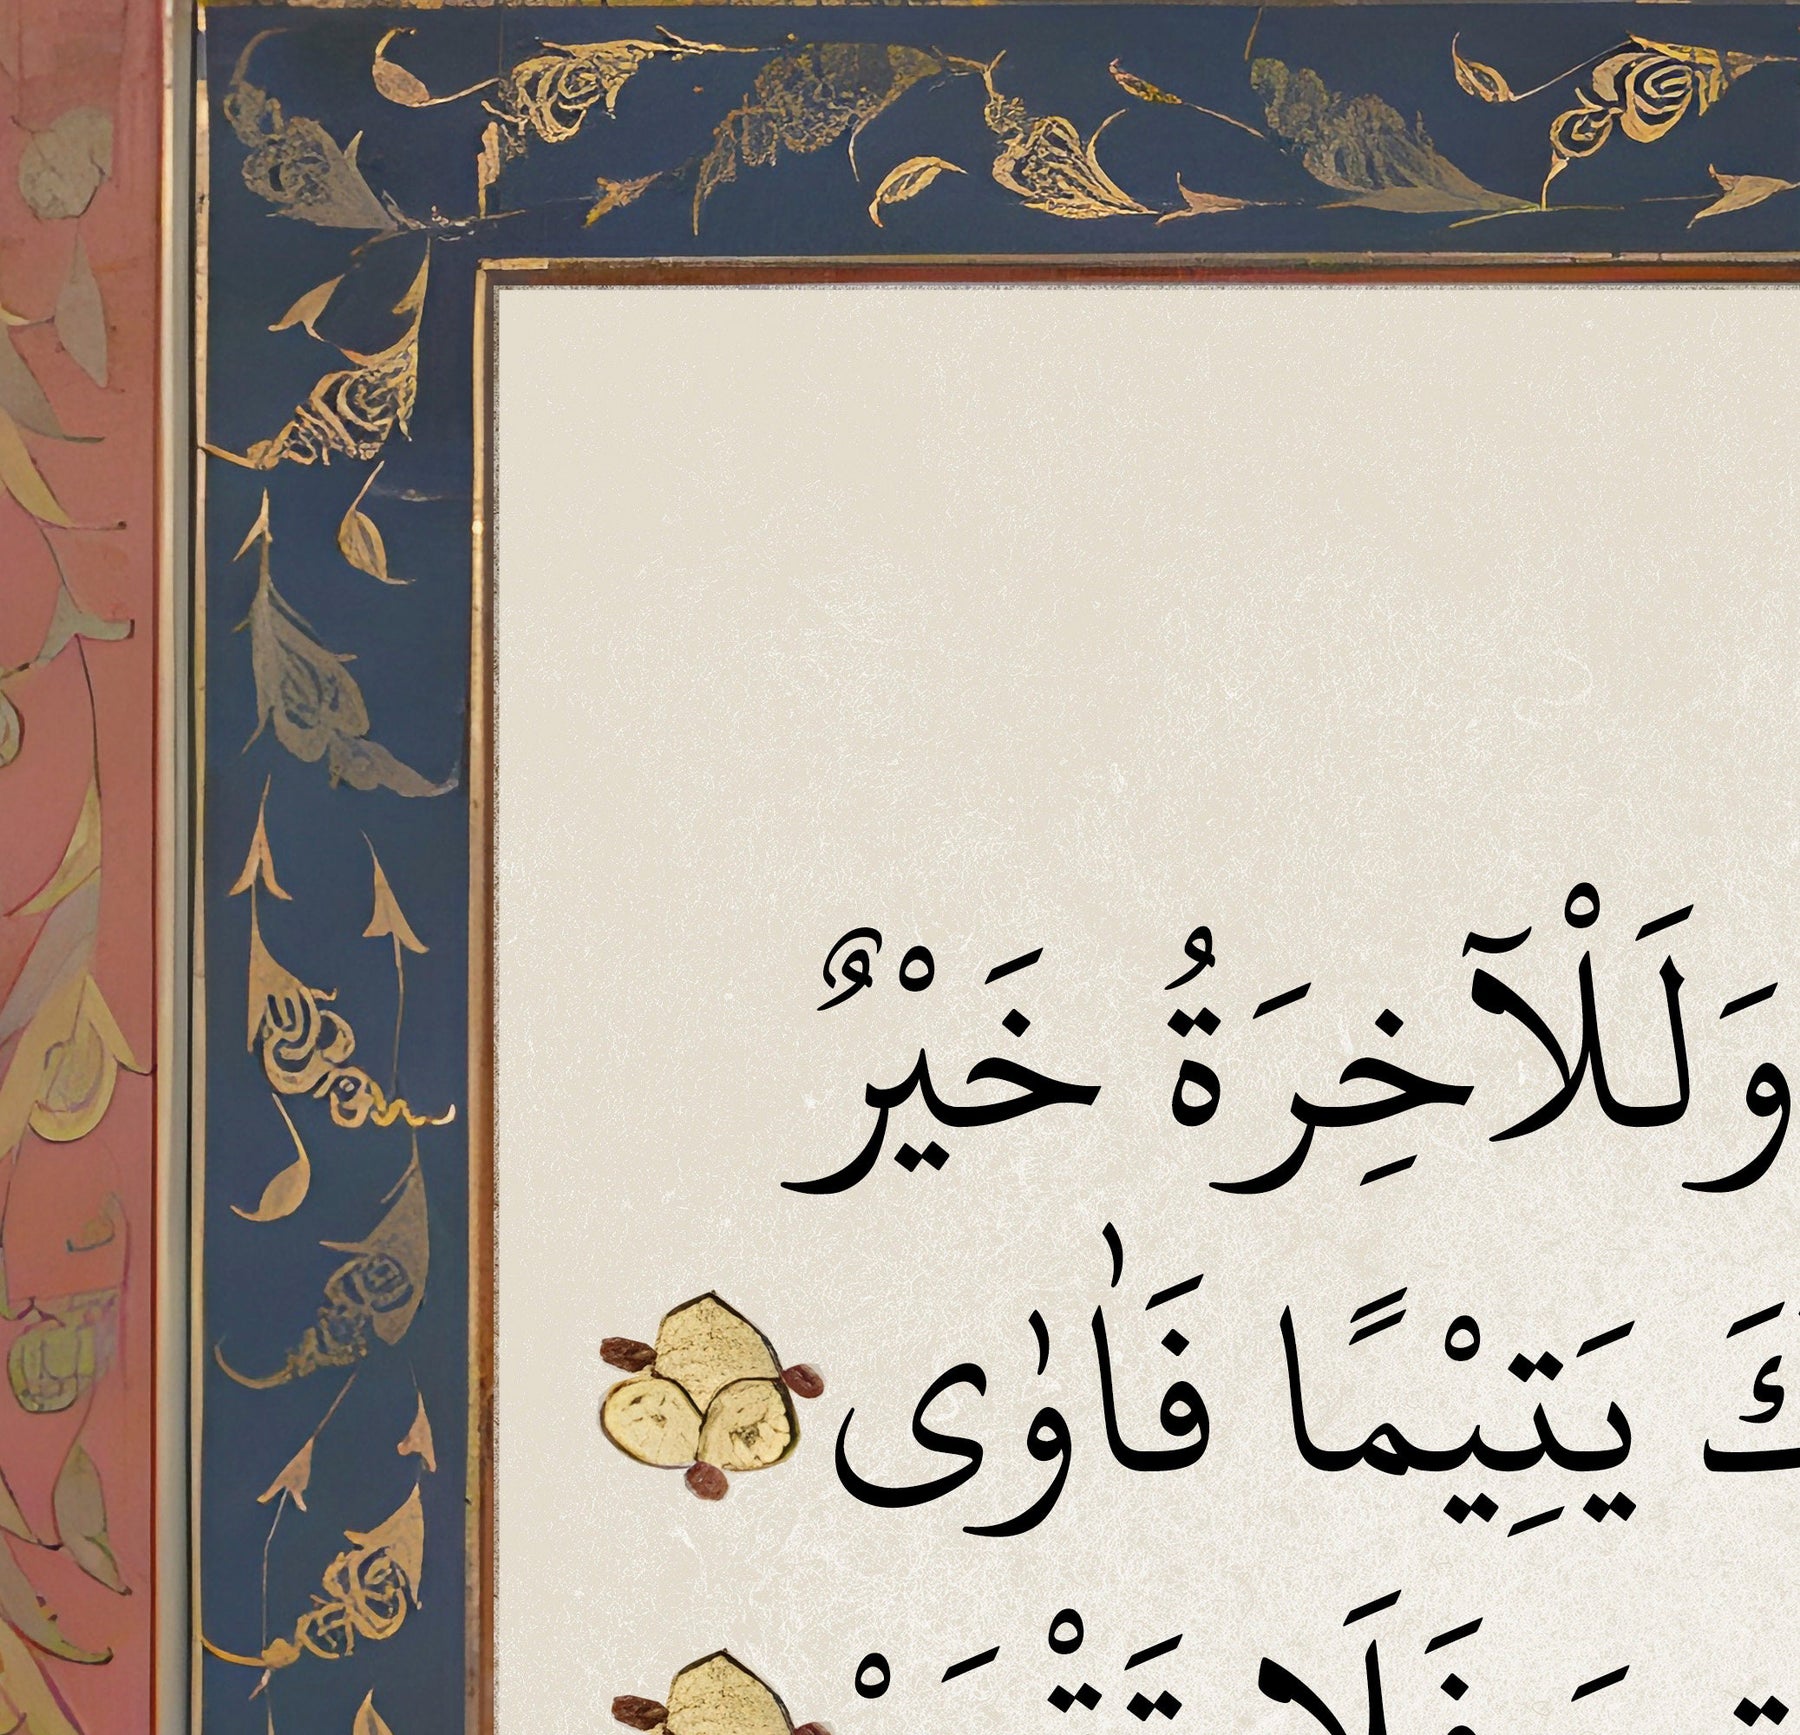 وَلَلْآخِرَةُ خَيْرٌ
يَتِيْمًا فَاٰوٰى
فَلَا